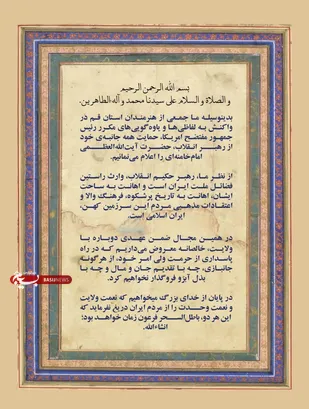 بسم الله الرحمن الرحیم
و الصلاة و السلام علی سیدنا محمد و آله الطاهرین.
بدینوسیله ما جمعی از هنرمندان استان قم در
واکنش به لفاظی‌ها و یاوه‌گویی‌های مکرر رئیس
جمهور مفتضح آمریکا، حمایت همه جانبه‌ی خود
از رهبر انقلاب، حضرت آیت‌الله‌العظمی
امام‌خامنه‌ای را اعلام می‌نمائیم.
از نظر ما، رهبر حکیم انقلاب، وارث راستین
فضائل ملت ایران است و اهانت به ساحت
ایشان، اهانت به تاریخ پرشکوه، فرهنگ والا و
اعتقادات مذهبی مردم این سرزمین کهن،
ایران اسلامی است.
در همین مجال ضمن عهدی دوباره با
ولایت، خالصانه معروض می‌داریم که در راه
پاسداری از حرمت ولی امر خود، از هرگونه
جانبازی، چه با تقدیم جان و مال و چه با
بذل آبرو فروگذار نخواهیم کرد.
در پایان از خدای بزرگ میخواهیم که نعمت ولایت
و نعمت وحدت را از مردم ایران دریغ نفرماید که
این هر دو، باطل‌السحر فرعون زمان خواهد بود؛
انشاءالله.
BASUNEWS